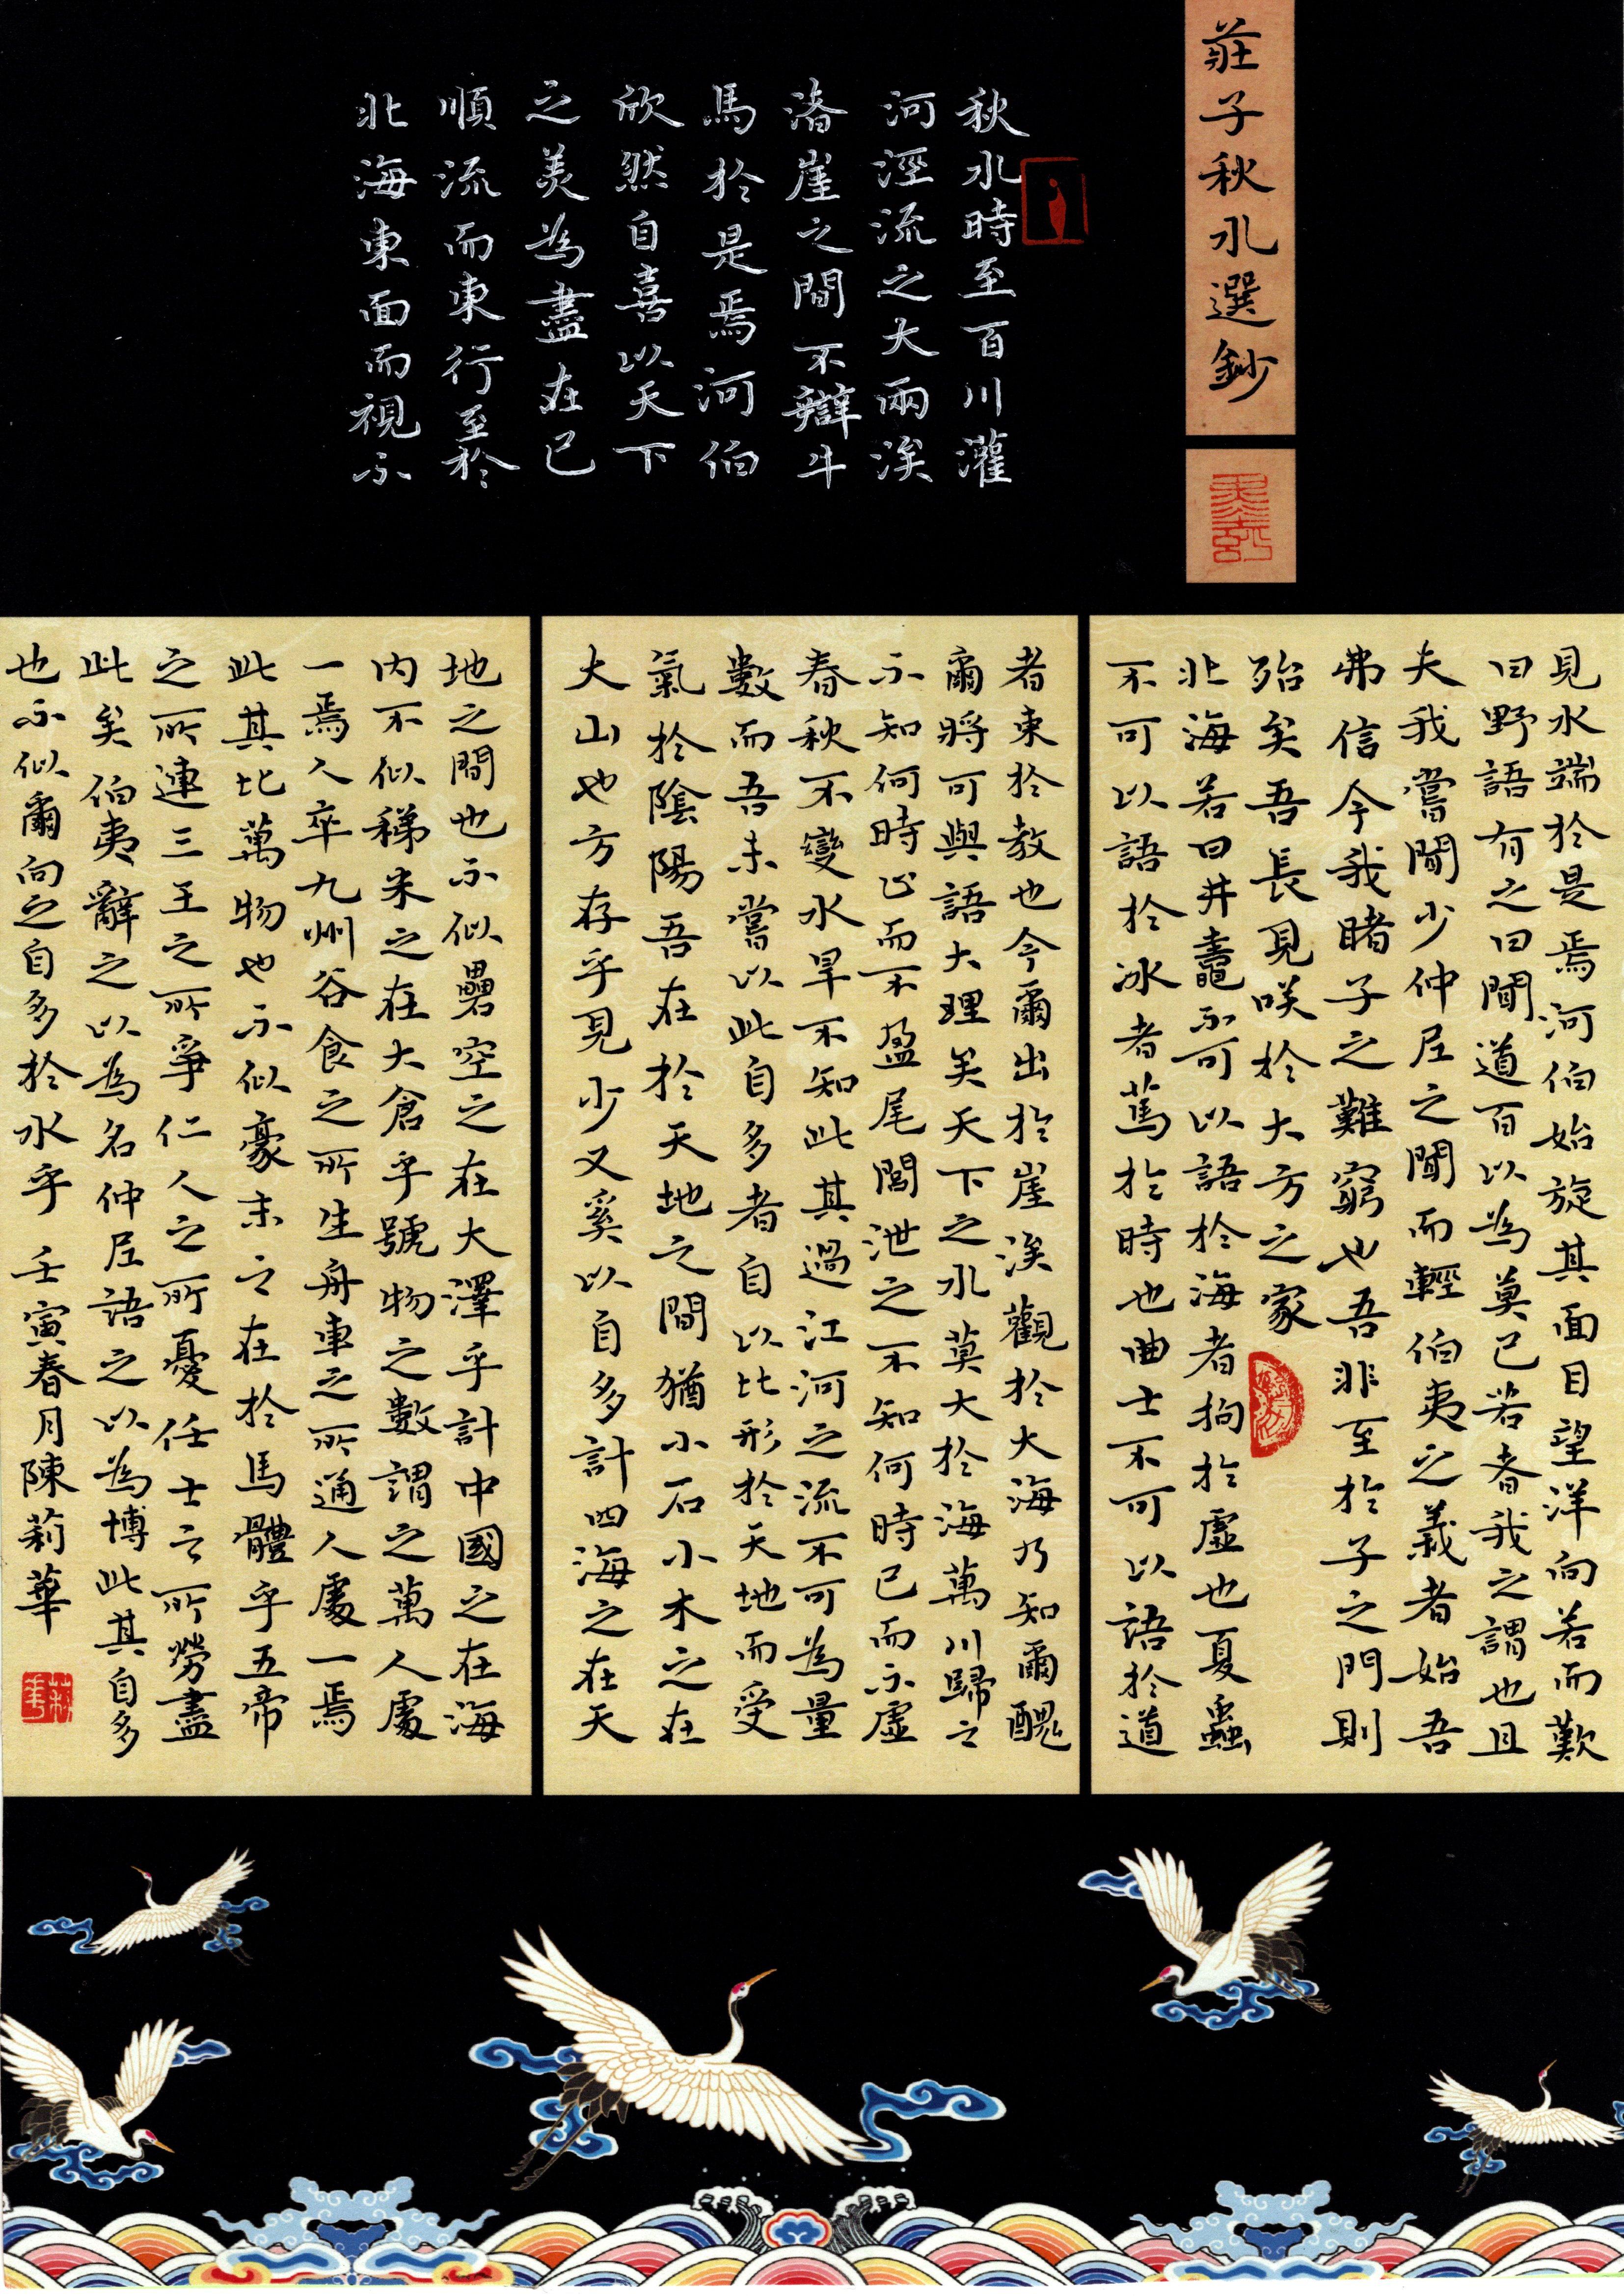 莊子秋水選鈔
秋水時至百川灌
河涇流之大兩涘
渚崖之間不辯牛
馬於是焉河伯
欣然自喜以天下
之美為盡在己
順流而東行至於
北海東面而視不
見水端於是焉河伯始旋其面目望洋向若而歎
曰野語有之曰聞道百以為莫己若者我之謂也且
夫我嘗聞少仲尼之聞而輕伯夷之義者始吾
弗信今我睹子之難窮也吾非至於子之門則
殆矣吾長見咲於大方之家
北海若曰井鼃不可以語於海者拘於虛也夏蟲
不可以語於冰者篤於時也曲士不可以語於道
者束於教也今爾出於崖涘觀於大海乃知爾醜
爾將可與語大理矣天下之水莫大於海萬川歸之
不知何時止而不盈尾閭泄之不知何時已而不虛
春秋不變水旱不知此其過江河之流不可為量
數而吾未嘗以此自多者自以比形於天地而受
氣於陰陽吾在於天地之間猶小石小木之在
大山也方存乎見少又奚以自多計四海之在天
地之間也不似礨空之在大澤乎計中國之在海
內不似稊米之在大倉乎號物之數謂之萬人處
一焉人卒九州谷食之所生舟車之所通人處一焉
此其比萬物也不似豪末之在於馬體乎五帝
之所連三王之所爭仁人之所憂任士之所勞盡
此矣伯夷辭之以為名仲尼語之以為博此其自多
也不似爾向之自多於水乎 壬寅春月陳莉華